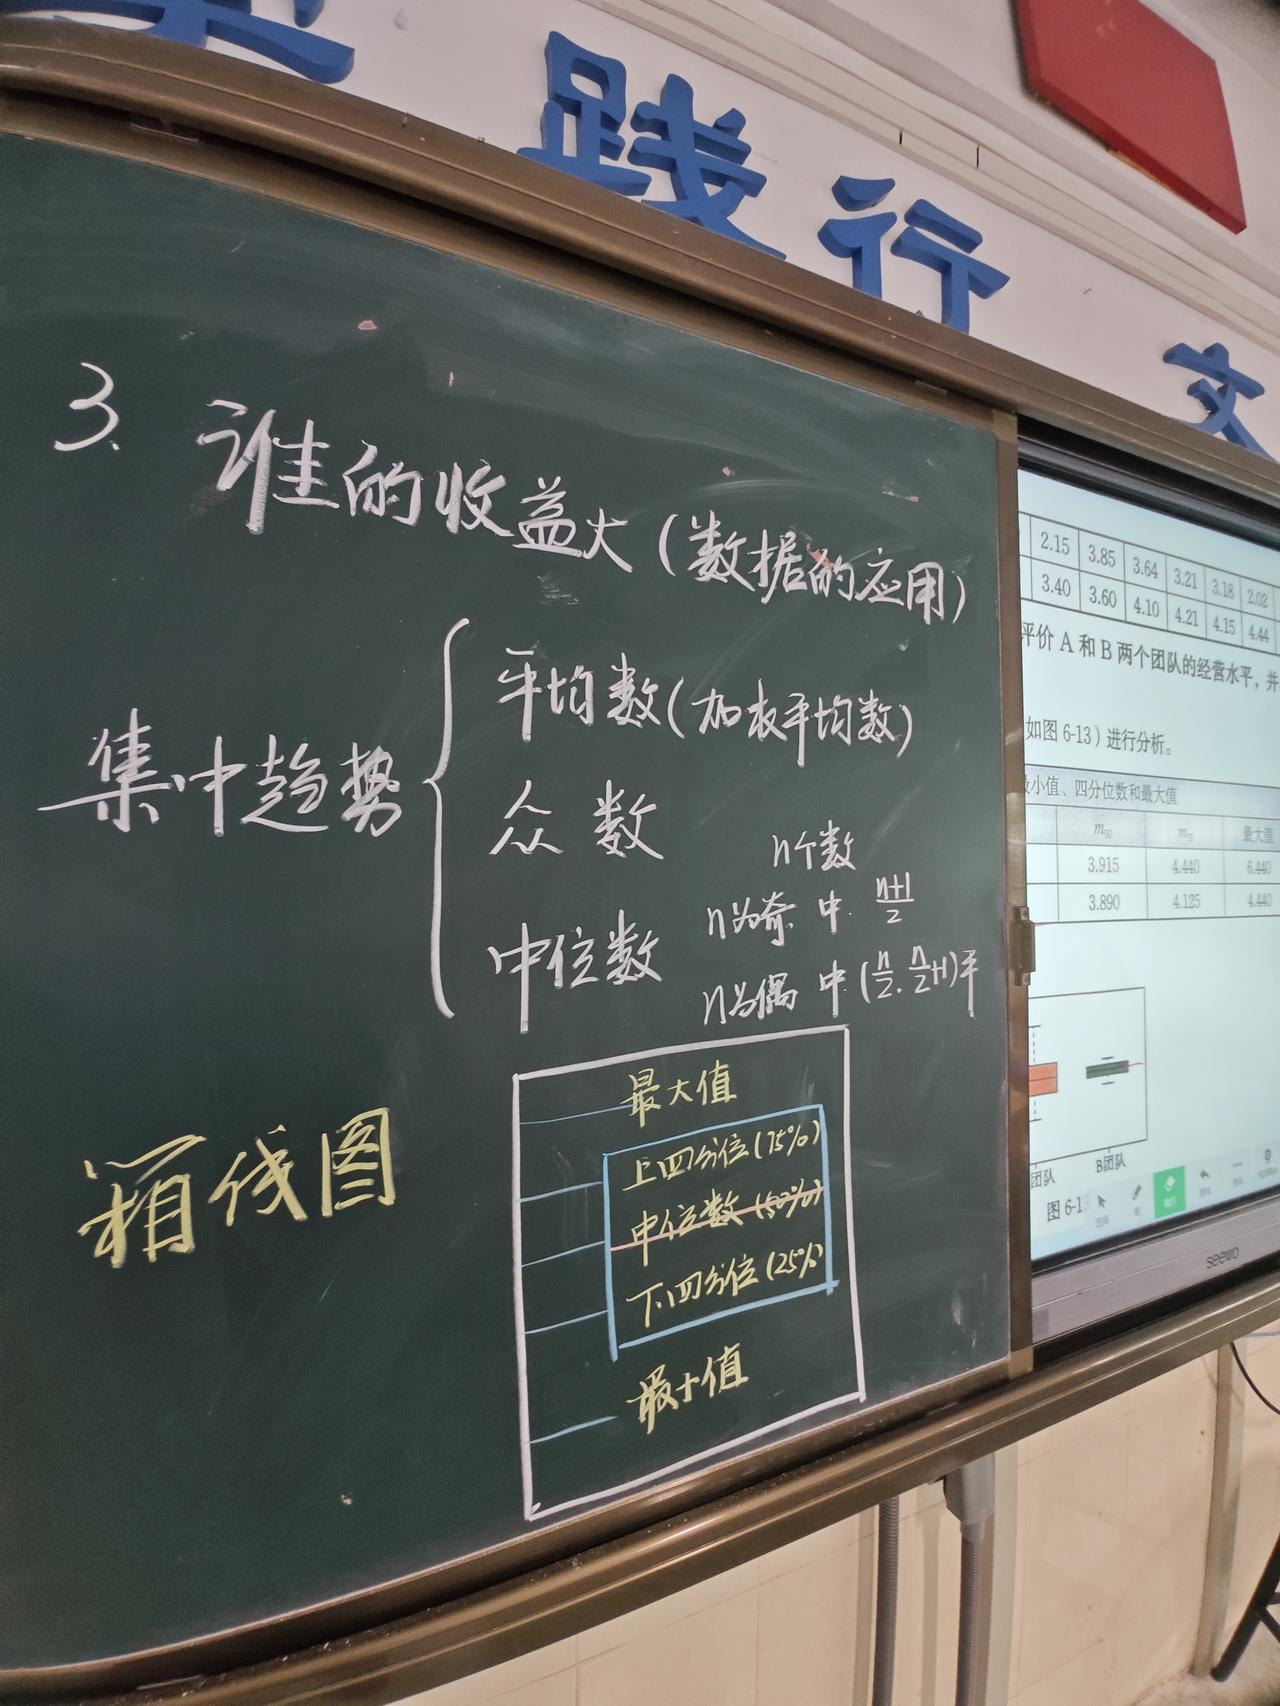 践行 文
3. 谁的收益大(数据的应用)
集中趋势
平均数(加权平均数)
众数
中位数
n个数
n为奇 中. n+1/2
n为偶 中.(n/2. n/2+1)平
箱线图
最大值
上四分位(75%)
中位数(50%)
下四分位(25%)
最小值
2.15 3.85 3.64 3.21 3.18 2.02
3.40 3.60 4.10 4.21 4.15 4.44
平价 A 和 B 两个团队的经营水平，并
如图 6-13）进行分析。
小值、四分位数和最大值
m50 m75 最大值
3.915 4.440 6.440
3.890 4.125 4.440
团队 B团队
图 6-1
seewo